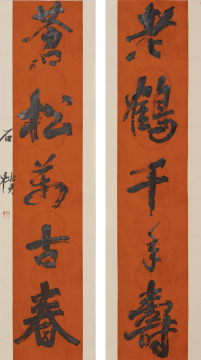 老鶴千年壽
蒼松萬古春
石